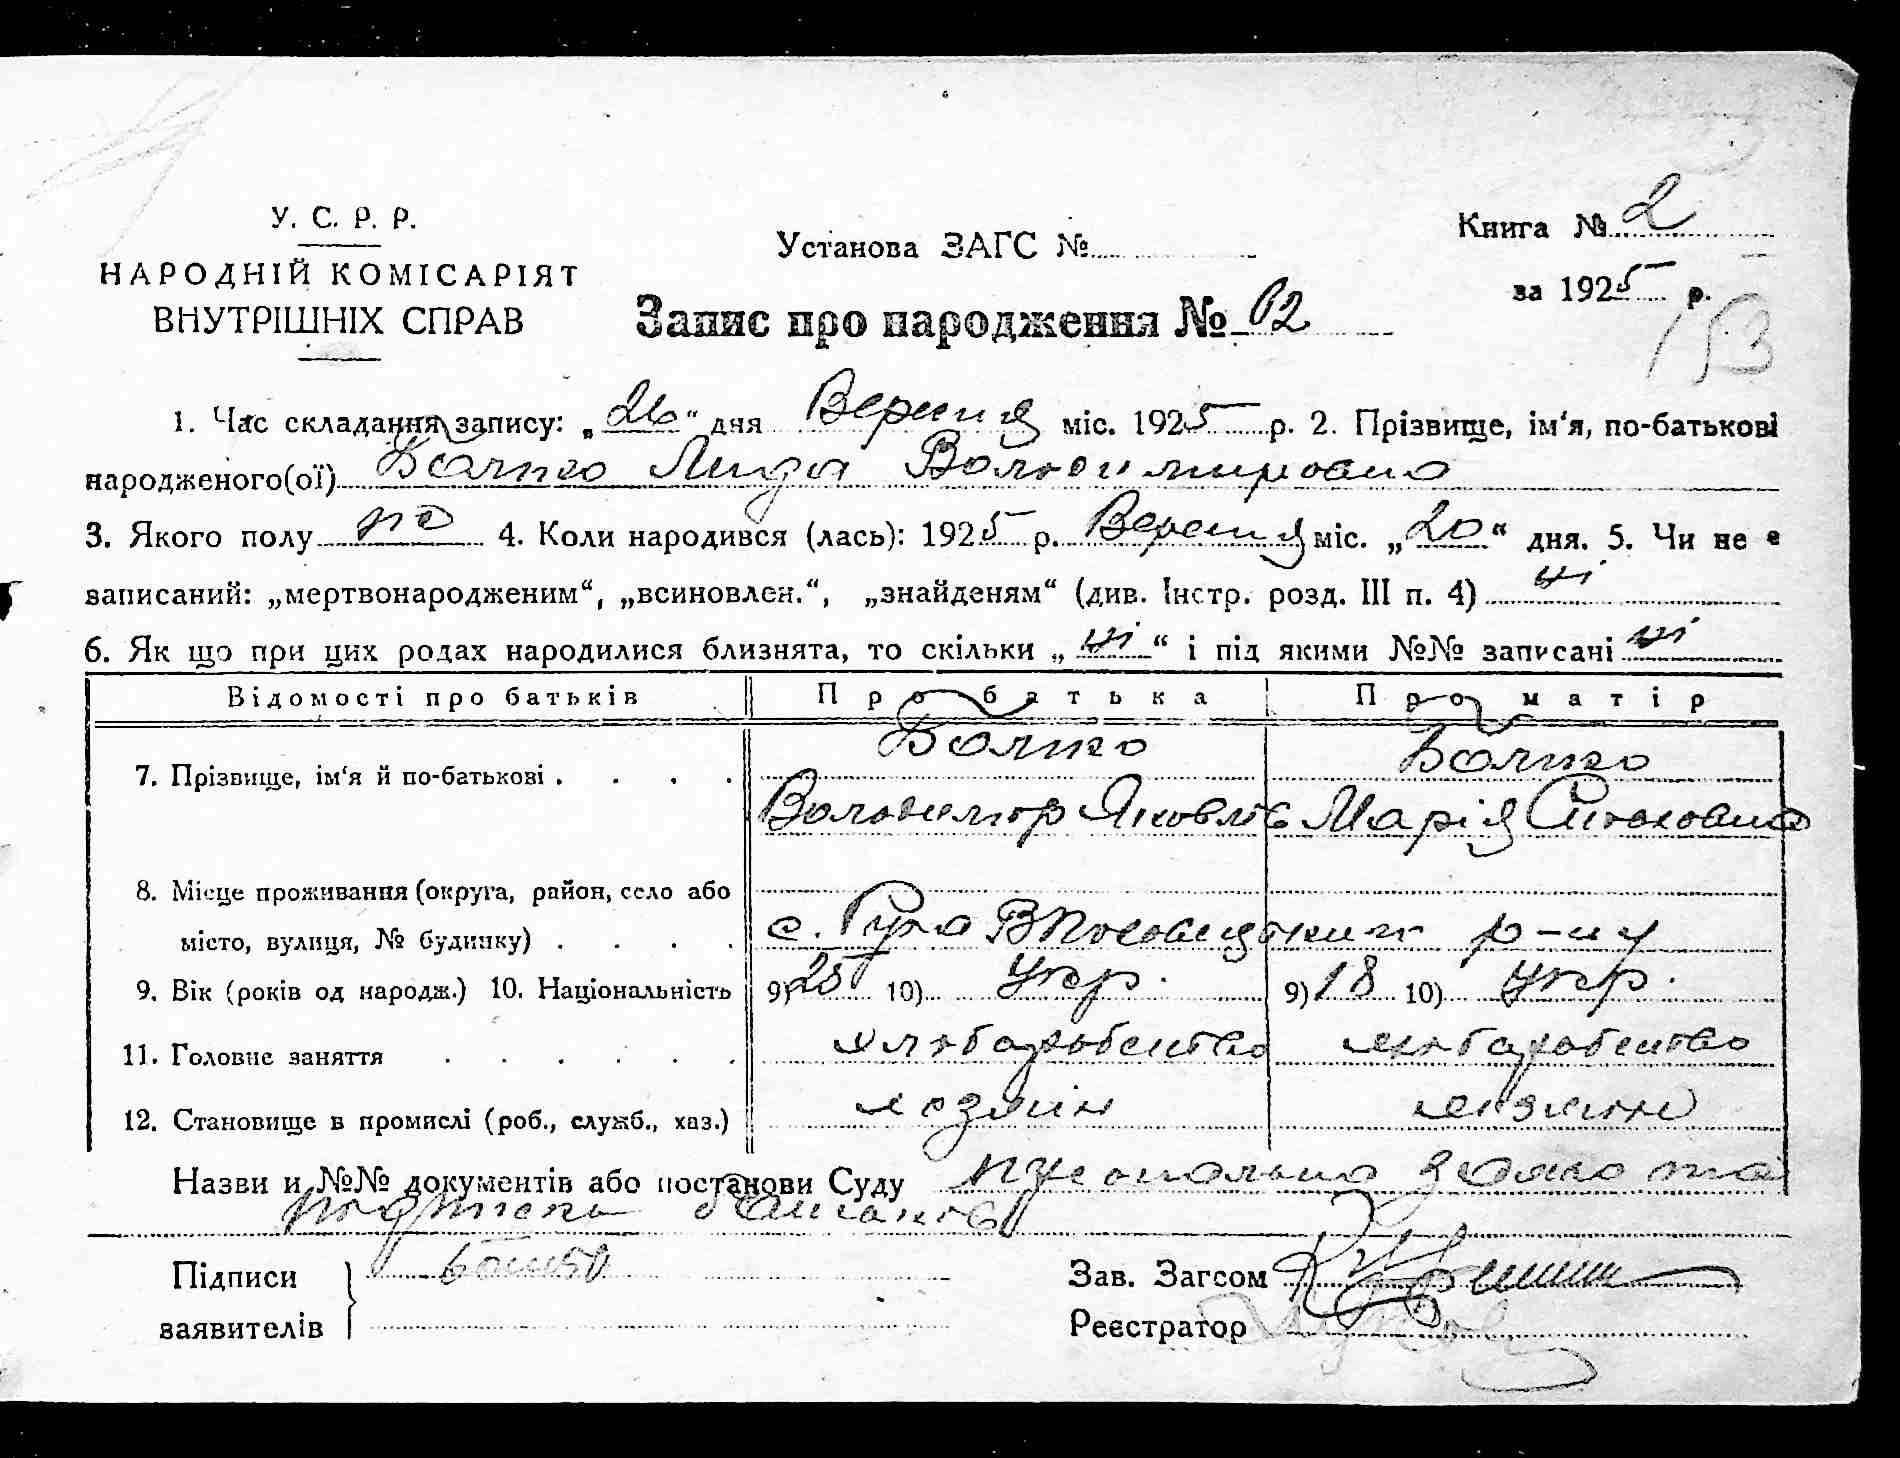 У. С. Р. Р.
НАРОДНІЙ КОМІСАРІЯТ
ВНУТРІШНІХ СПРАВ
Установа ЗАГС №
Книга № 2
за 1925 р.
153
Запис про народження № 62
1. Час складання запису: „26“ дня Вересня міс. 1925 р. 2. Прізвище, ім‘я, по-батькові
народженого(ої) Лида Володимировна
3. Якого полу 4. Коли народився (лась): 1925 р. Вересня міс. „20“ дня. 5. Чи не є
записаний: „мертвонародженим“, „всиновлен.“, „знайденям“ (див. Інстр. розд. III п. 4) ні
6. Як що при цих родах народилися близнята, то скільки „ні“ і під якими №№ записані ні
Відомості про батьків Про батька Про матір
7. Прізвище, ім‘я й по-батькові
Володимір Яковлів Марія
8. Місце проживання (округа, район, село або
місто, вулиця, № будинку) с. р-ну
9. Вік (років од народж.) 10. Національність 9) 25 10) Укр. 9) 18 10) Укр.
11. Головне заняття хлібаробство хлібаробство
12. Становище в промислі (роб., служб., хаз.) хозяїн
Назви и №№ документів або постанови Суду заява та
батьків
Підписи
заявителів
Зав. Загсом
Реєстратор